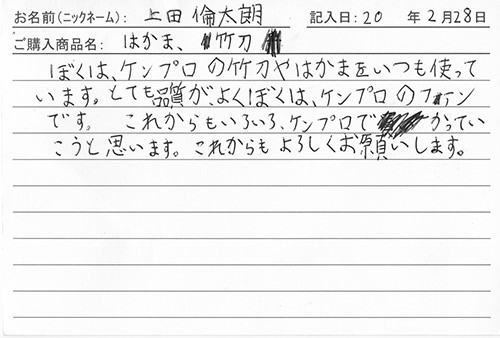 お名前(ニックネーム): 上田 倫太朗 記入日: 20 年 2月 28日
ご購入商品名: はかま、竹刀
ぼくは、ケンプロの竹刀やはかまをいつも使って
います。とても品質がよくぼくは、ケンプロのファン
です。 これからもいろいろ、ケンプロで かってい
こうと思います。これからもよろしくお願いします。